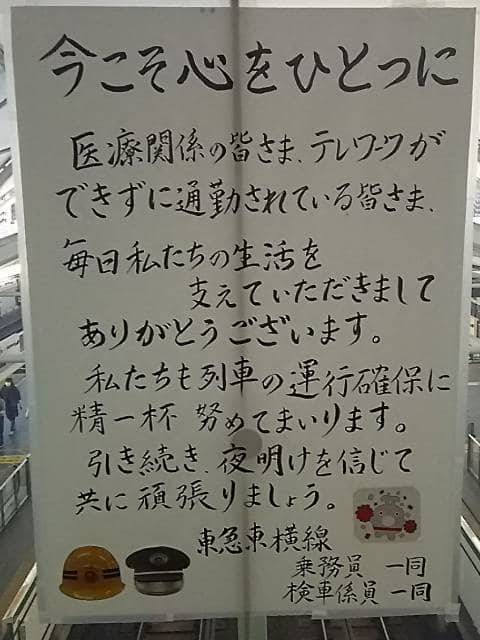 今こそ心をひとつに
医療関係の皆さま、テレワークが
できずに通勤されている皆さま、
毎日私たちの生活を
支えていただきまして
ありがとうございます。
私たちも列車の運行確保に
精一杯 努めてまいります。
引き続き、夜明けを信じて
共に頑張りましょう。
東急東横線
乗務員 一同
検車係員 一同